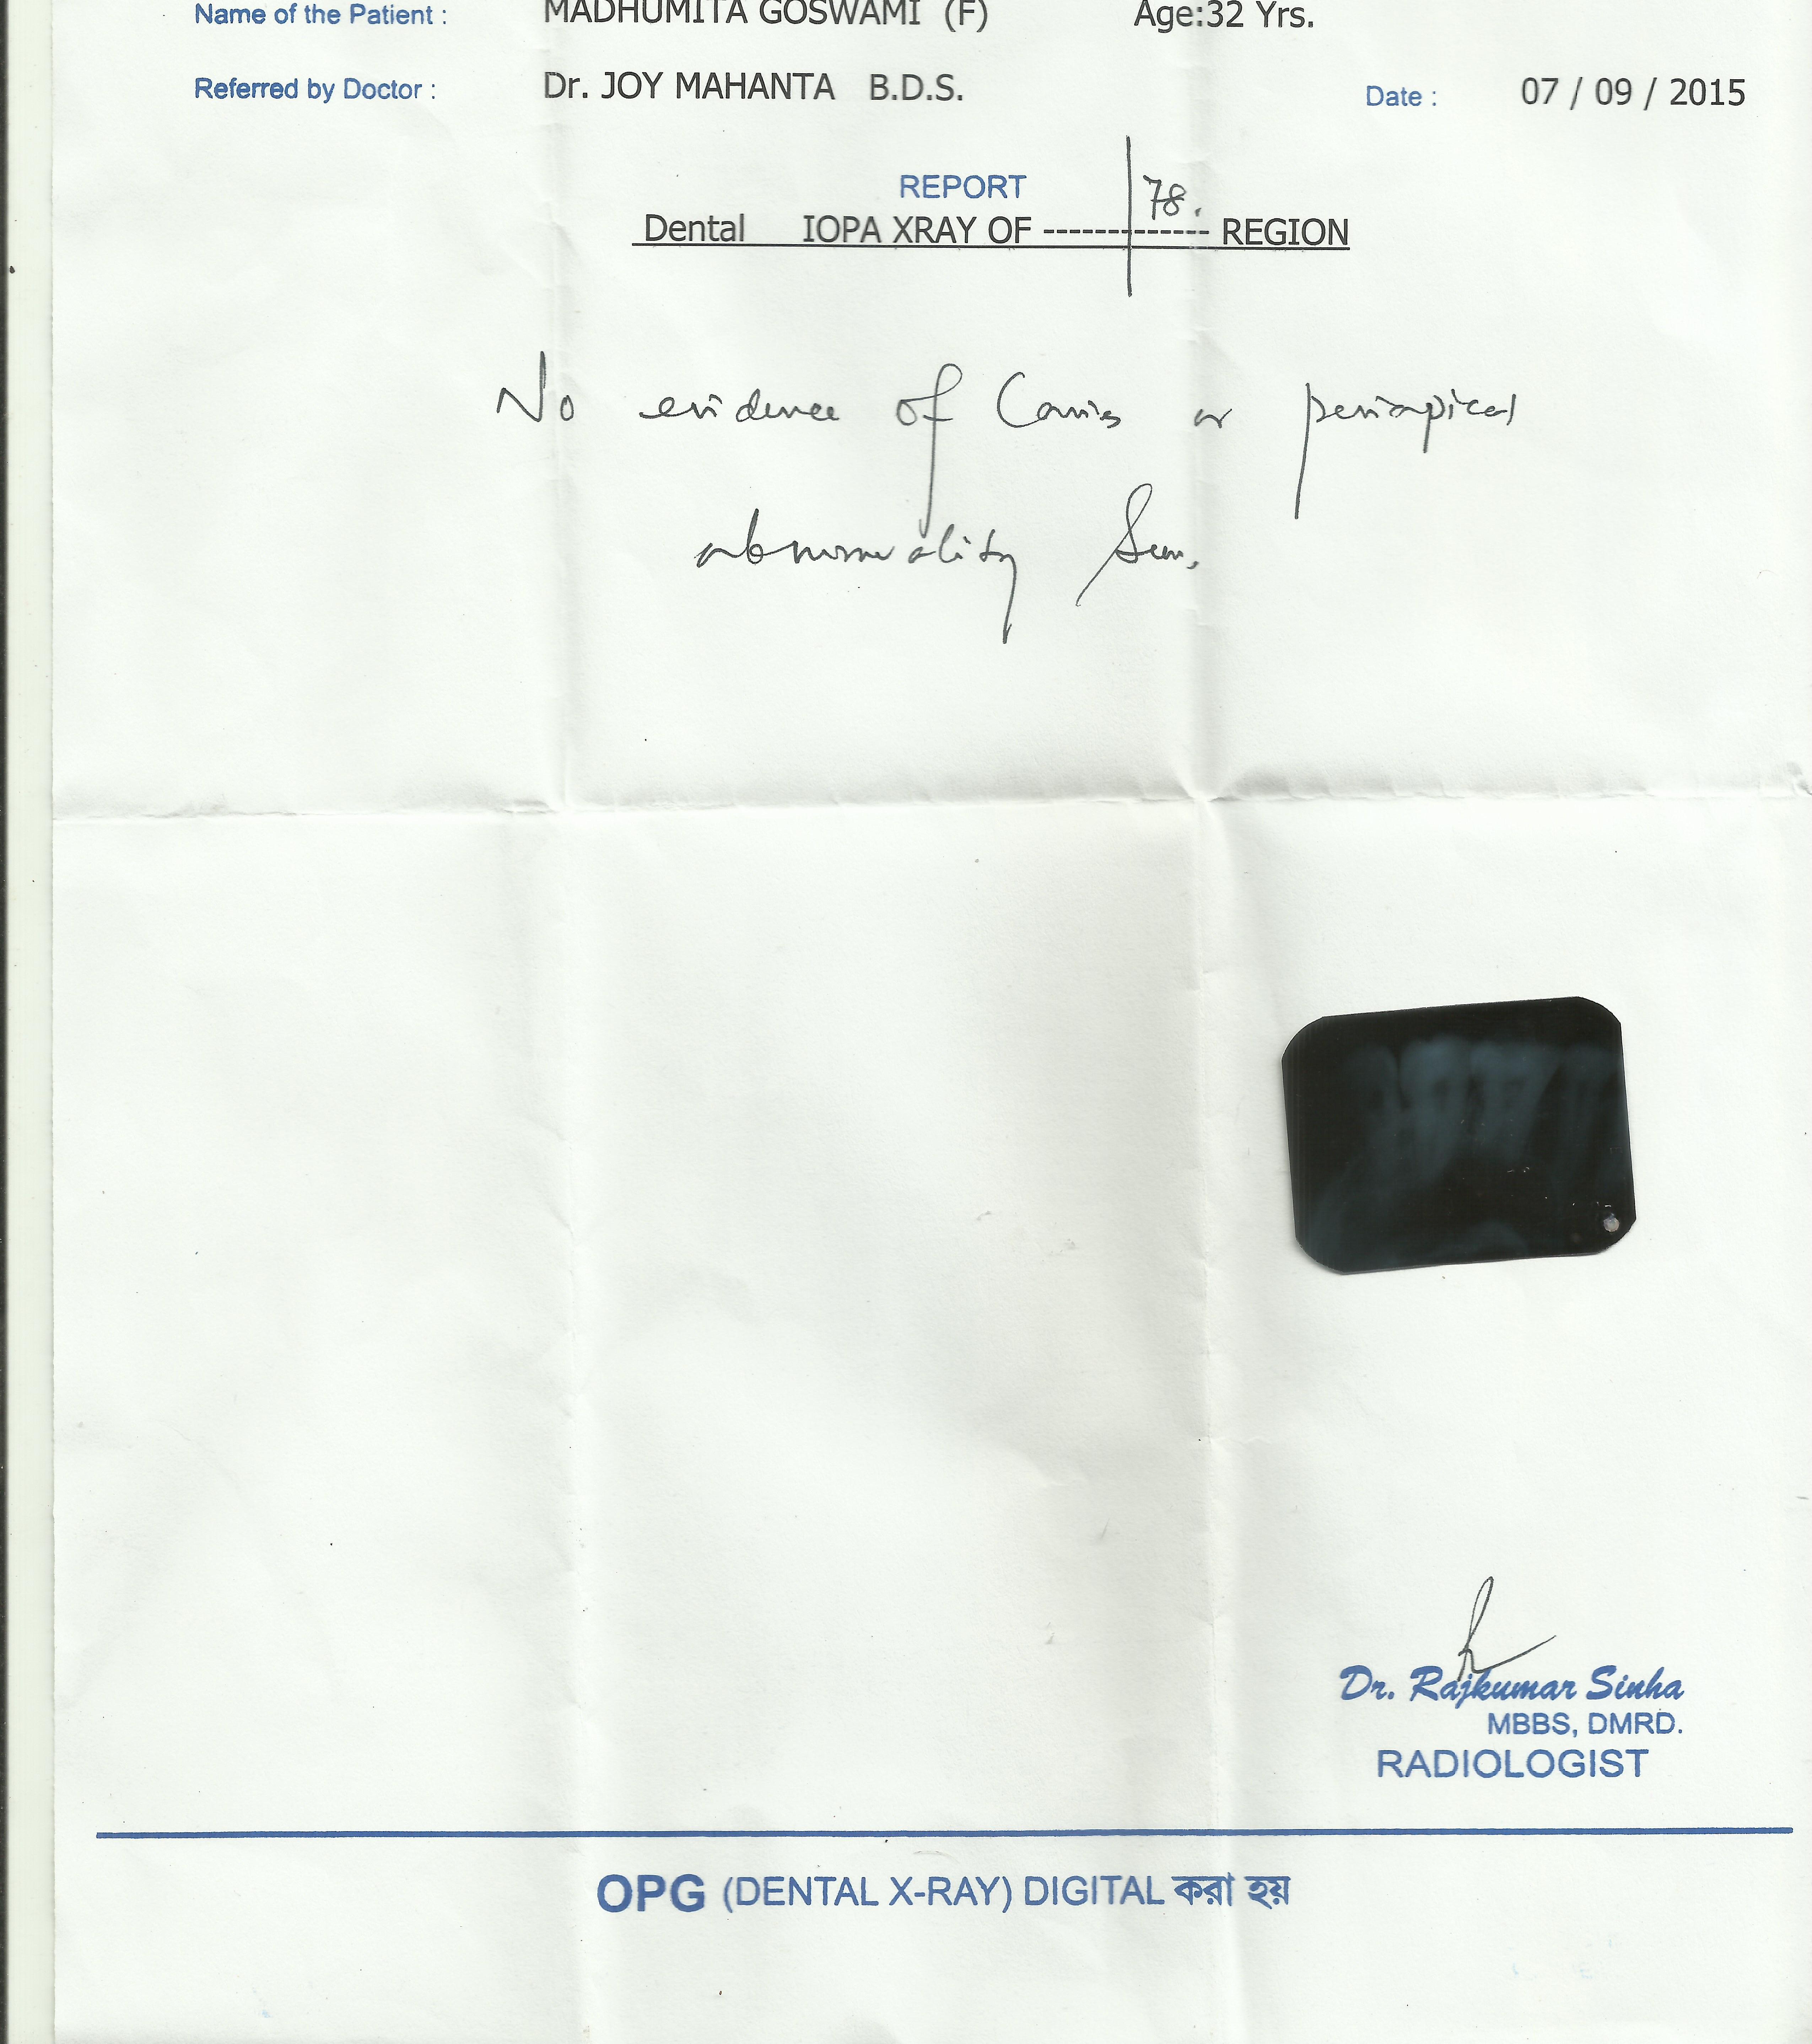 Name of the Patient : MADHUMITA GOSWAMI (F) Age:32 Yrs.
Referred by Doctor : Dr. JOY MAHANTA B.D.S. Date : 07 / 09 / 2015
REPORT
78.
Dental IOPA XRAY OF ------------- REGION
No evidence of Caries or periapical
abnormality seen.
Dr. Rajkumar Sinha
MBBS, DMRD.
RADIOLOGIST
OPG (DENTAL X-RAY) DIGITAL করা হয়